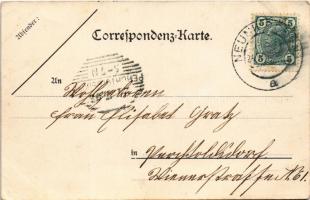 Absender:
Correspondenz-Karte.
5 5
NEUN
5 5
a
An
Wohlgeboren
Frau Elisabet Gratz
in Perchtoldsdorf
Wienerstrasse No 1.